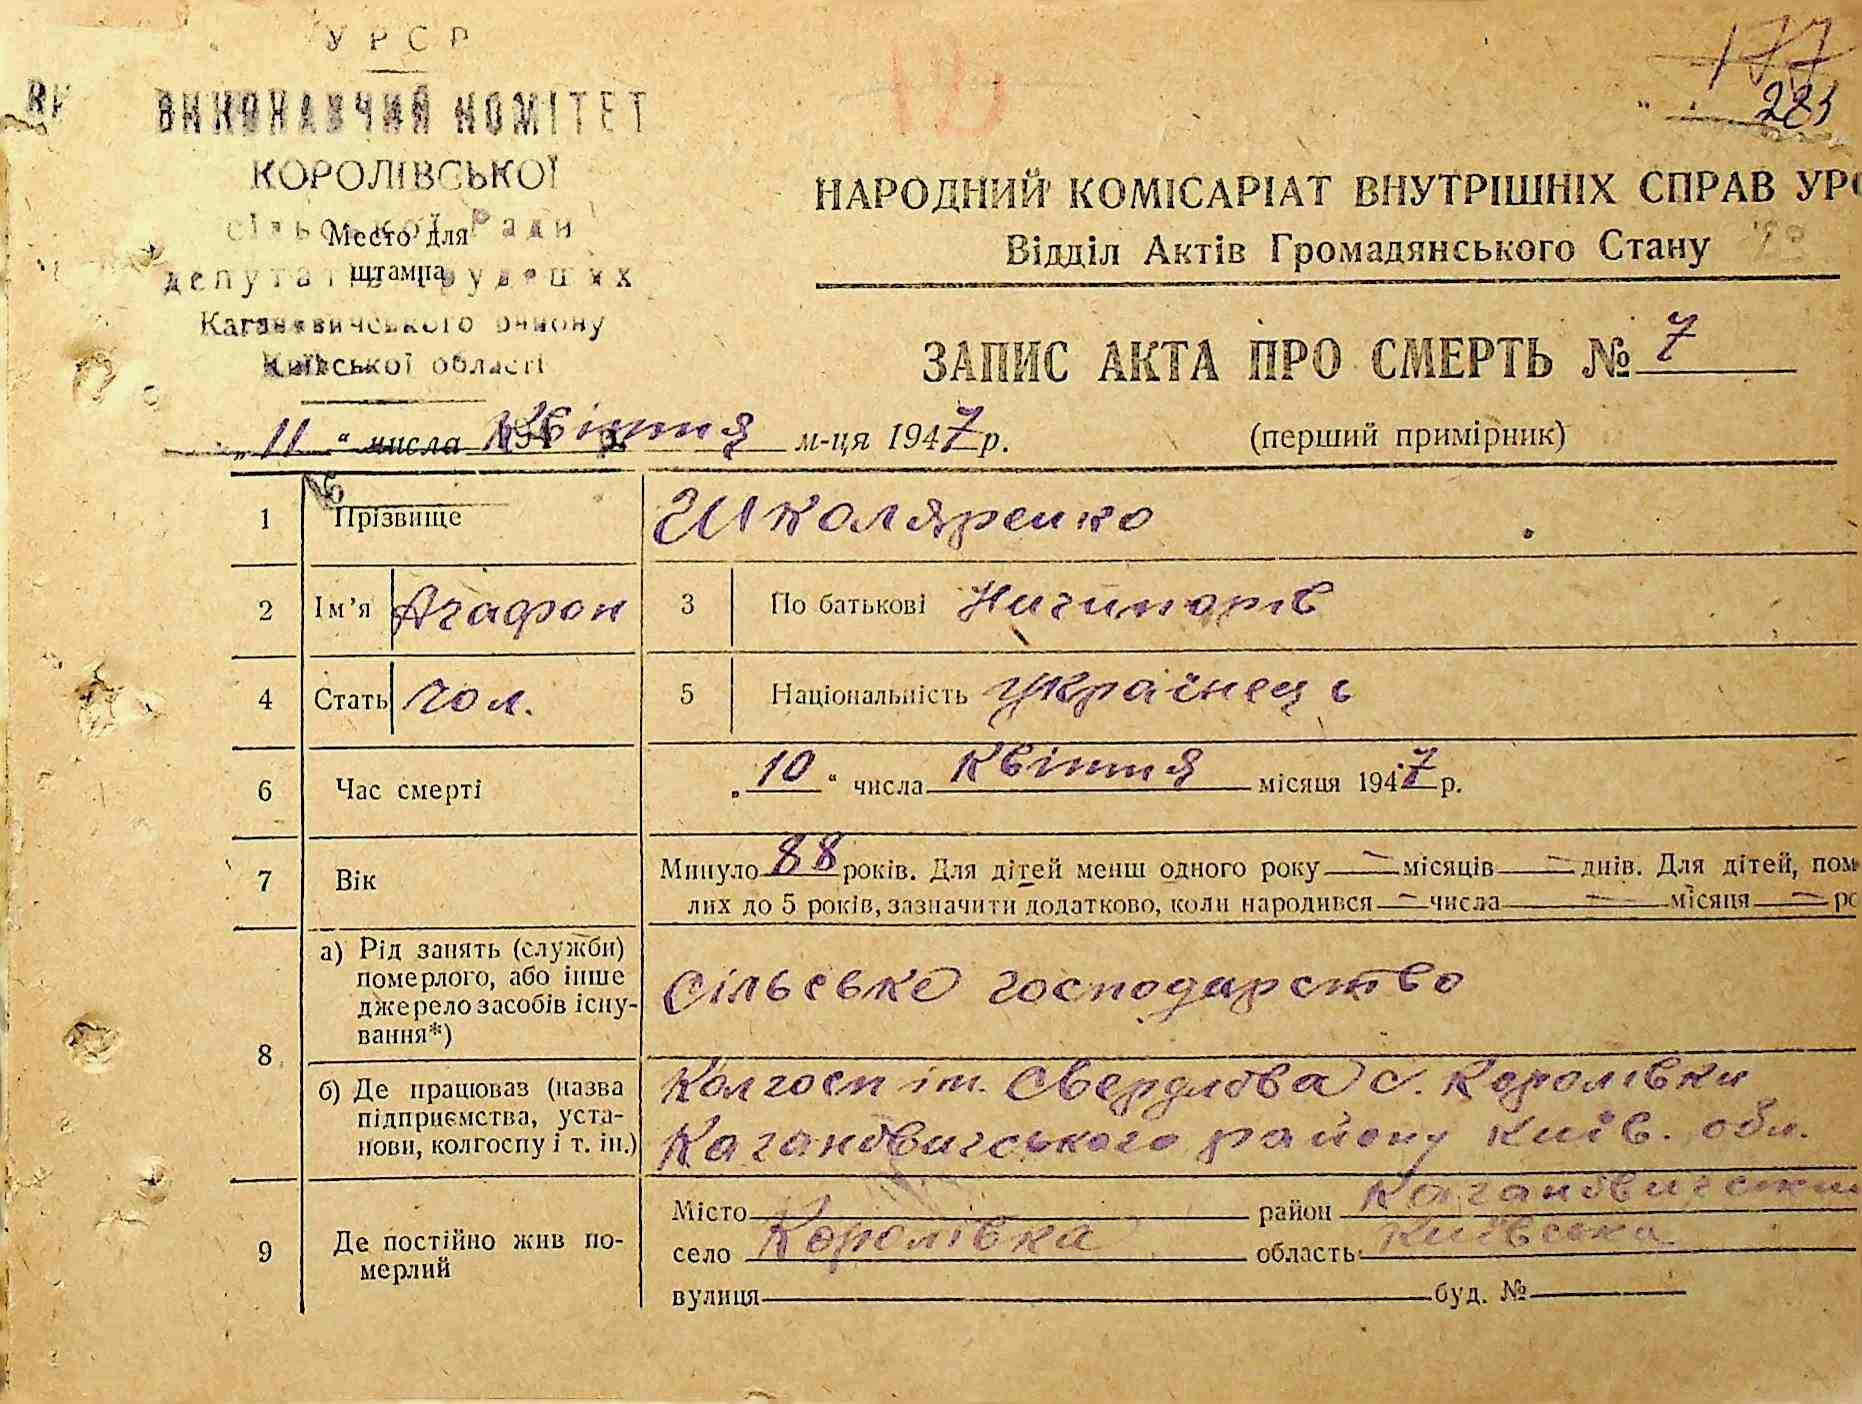 УРСР
ВИКОНАВЧИЙ КОМІТЕТ
КОРОЛІВСЬКОЇ
сільської Ради
депутатів трудящих
Кагановичського району
Київської області
Место для
штампа
177
283
НАРОДНИЙ КОМІСАРІАТ ВНУТРІШНІХ СПРАВ УРС
Відділ Актів Громадянського Стану
ЗАПИС АКТА ПРО СМЕРТЬ № 7
„11“ числа Квітня м-ця 1947 р.
(перший примірник)
№
1 Прізвище Школяренко
2 Ім’я Агафон 3 По батькові Ничипорів
4 Стать чол. 5 Національність українець
6 Час смерті „10“ числа Квітня місяця 1947 р.
7 Вік Минуло 88 років. Для дітей менш одного року — місяців — днів. Для дітей, пом
лих до 5 років, зазначити додатково, коли народився — числа — місяця — ро
8 а) Рід занять (служби)
померлого, або інше
джерело засобів існу-
вання*)
Сільське господарство
б) Де працював (назва
підприємства, уста-
нови, колгоспу і т. ін.)
Колгосп ім. Свердлова с. Королівки
Кагановичського району Київ. обл.
9 Де постійно жив по-
мерлий
Місто район Кагановичський
село Королівка область Київська
вулиця буд. №